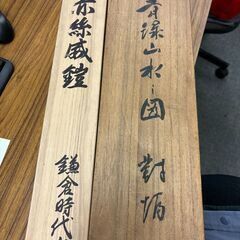 青緑山水之図 對幅
赤絲威鎧
鎌倉時代